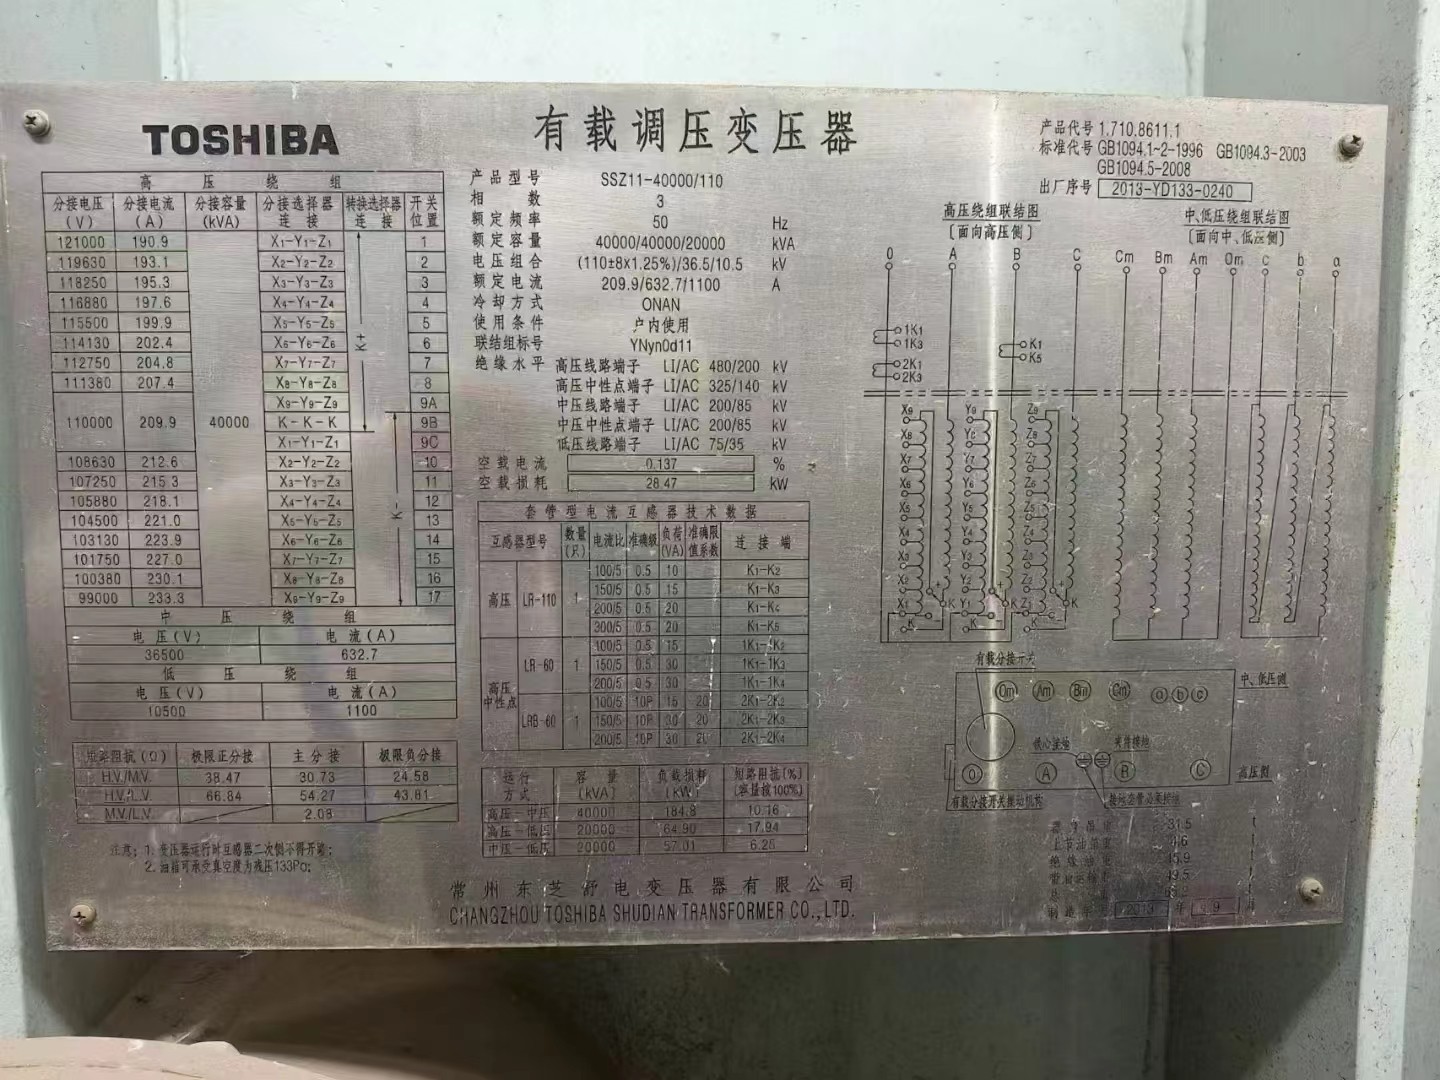 TOSHIBA
有载调压变压器
产品代号 1.710.8611.1
标准代号 GB1094.1~2-1996 GB1094.3-2003
GB1094.5-2008
出厂序号 2013-YD133-0240
高压绕组
分接电压(V) 分接电流(A) 分接容量(kVA) 分接选择器连接 转换选择器连接 开关位置
121000 190.9 X1-Y1-Z1 1
119630 193.1 X2-Y2-Z2 2
118250 195.3 X3-Y3-Z3 3
116880 197.6 X4-Y4-Z4 4
115500 199.9 X5-Y5-Z5 5
114130 202.4 X6-Y6-Z6 6
112750 204.8 X7-Y7-Z7 7
111380 207.4 X8-Y8-Z8 8
X9-Y9-Z9 9A
110000 209.9 40000 K-K-K 9B
X1-Y1-Z1 9C
108630 212.6 X2-Y2-Z2 10
107250 215.3 X3-Y3-Z3 11
105880 218.1 X4-Y4-Z4 12
104500 221.0 X5-Y5-Z5 13
103130 223.9 X6-Y6-Z6 14
101750 227.0 X7-Y7-Z7 15
100380 230.1 X8-Y8-Z8 16
99000 233.3 X9-Y9-Z9 17
K+
K-
中压绕组
电压(V) 电流(A)
36500 632.7
低压绕组
电压(V) 电流(A)
10500 1100
短路阻抗(Ω) 极限正分接 主分接 极限负分接
H.V./M.V. 38.47 30.73 24.58
H.V./L.V. 66.84 54.27 43.81
M.V./L.V. 2.08
注意：1.变压器运行时互感器二次侧不得开路；
2.油箱可承受真空度为残压133Pa；
产品型号 SSZ11-40000/110
相数 3
额定频率 50 Hz
额定容量 40000/40000/20000 kVA
电压组合 (110±8x1.25%)/36.5/10.5 kV
额定电流 209.9/632.7/1100 A
冷却方式 ONAN
使用条件 户内使用
联结组标号 YNyn0d11
绝缘水平 高压线路端子 LI/AC 480/200 kV
高压中性点端子 LI/AC 325/140 kV
中压线路端子 LI/AC 200/85 kV
中压中性点端子 LI/AC 200/85 kV
低压线路端子 LI/AC 75/35 kV
空载电流 0.137 %
空载损耗 28.47 kW
套管型电流互感器技术数据
互感器型号 数量(只) 电流比 准确级 负荷(VA) 准确限值系数 连接端
高压 LR-110 1
100/5 0.5 10 K1-K2
150/5 0.5 15 K1-K3
200/5 0.5 20 K1-K4
300/5 0.5 20 K1-K5
高压中性点 LR-60 1
100/5 0.5 15 1K1-1K2
150/5 0.5 30 1K1-1K3
200/5 0.5 30 1K1-1K4
LRB-60 1
100/5 10P 15 20 2K1-2K2
150/5 10P 30 20 2K1-2K3
200/5 10P 30 20 2K1-2K4
运行方式 容量(kVA) 负载损耗(kW) 短路阻抗(%)(容量按100%)
高压-中压 40000 184.8 10.16
高压-低压 20000 64.90 17.94
中压-低压 20000 57.01 6.26
高压绕组联结图
(面向高压侧)
中、低压绕组联结图
(面向中、低压侧)
O A B C Cm Bm Am Om c b a
1K1
1K3
2K1
2K3
K1
K5
X9 Y9 Z9
X8 Y8 Z8
X7 Y7 Z7
X6 Y6 Z6
X5 Y5 Z5
X4 Y4 Z4
X3 Y3 Z3
X2 Y2 Z2
X1 Y1 Z1
K K K
有载分接开关
Om Am Bm Cm a b c
中、低压侧
铁心接地 夹件接地
O A B C
高压侧
有载分接开关操动机构
31.5 t
2013 年 9 月
常州东芝舒电变压器有限公司
CHANGZHOU TOSHIBA SHUDIAN TRANSFORMER CO.,LTD.